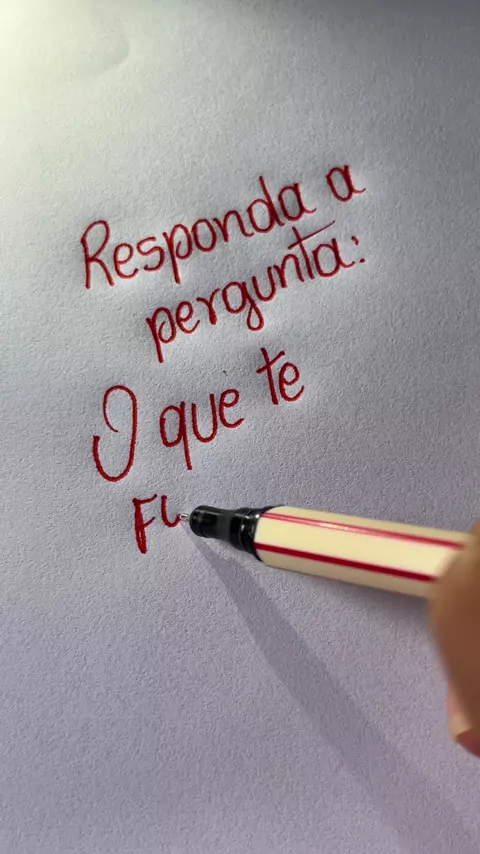 Responda a
pergunta:
O que te